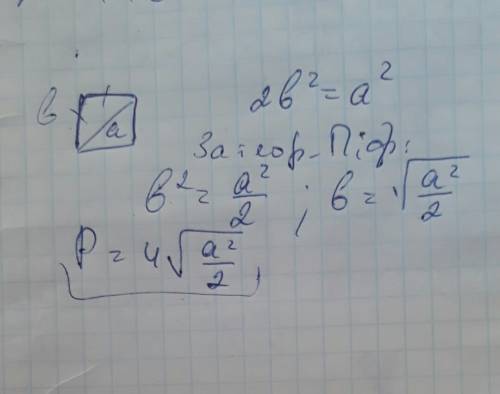 в a
2в² = a²
За теор. Піф:
в² = a²/2 ; в = √(a²/2)
P = 4√(a²/2)